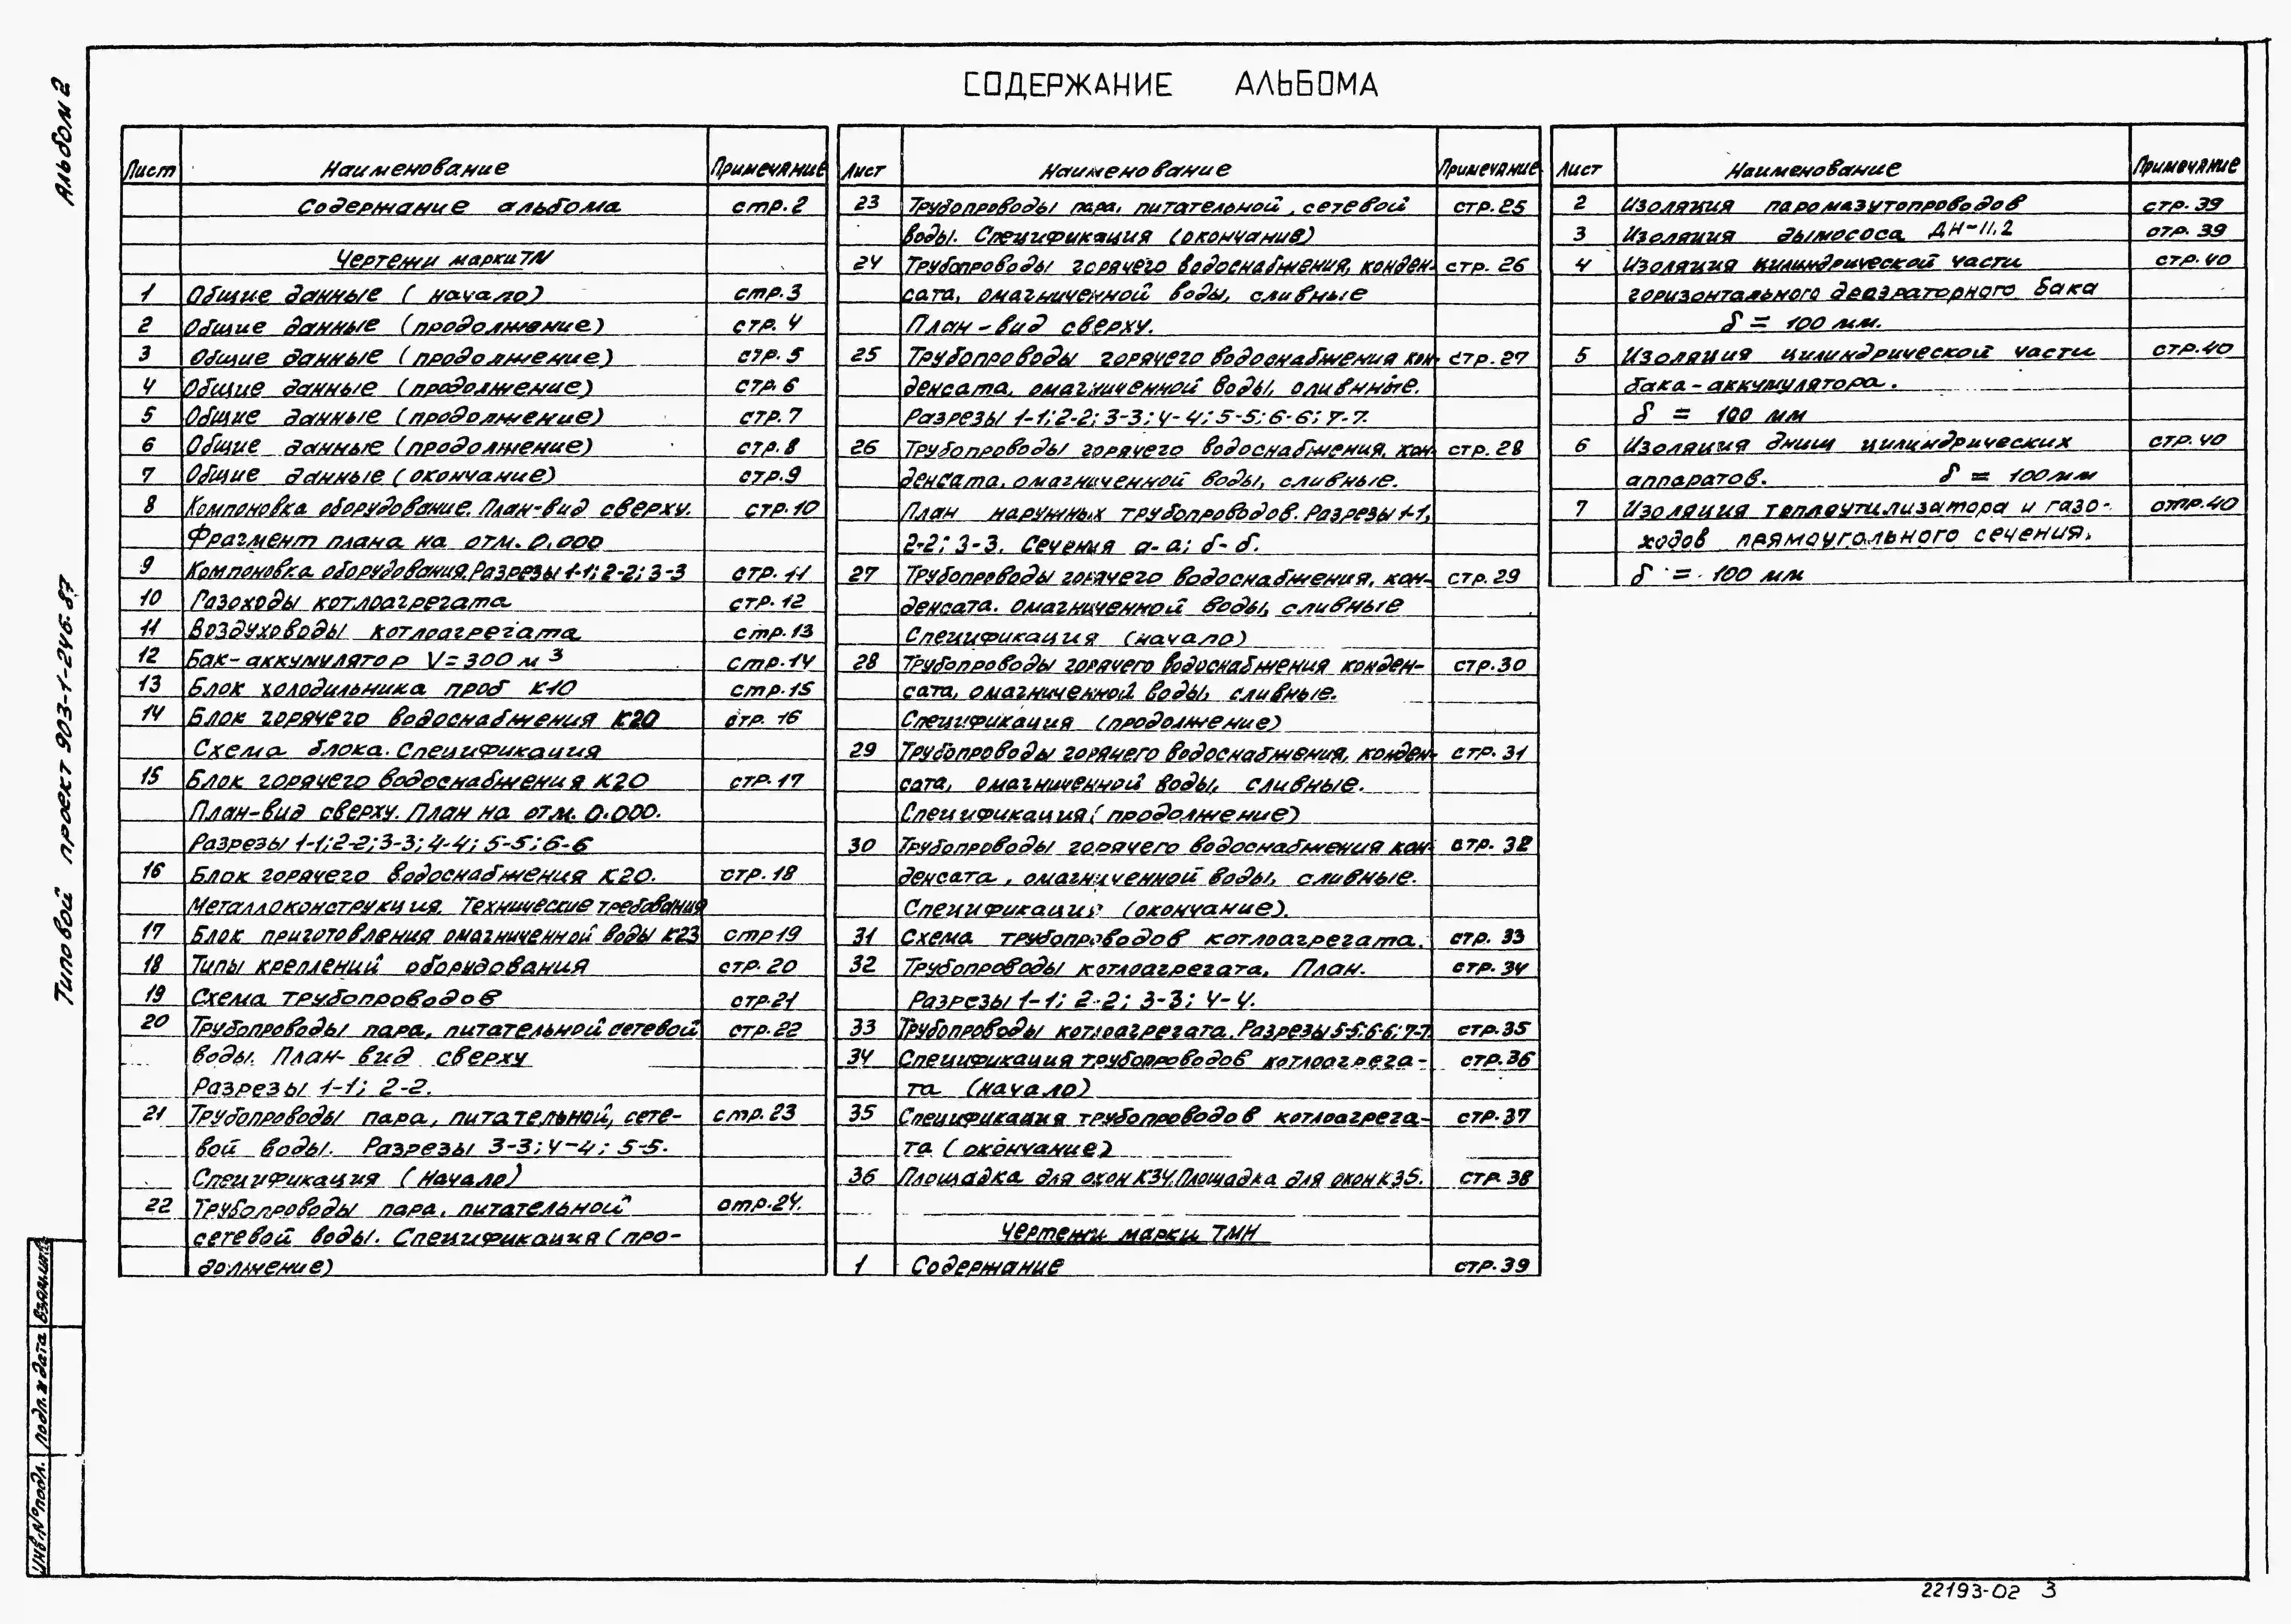 СОДЕРЖАНИЕ АЛЬБОМА
Альбом 2
Типовой проект 903-1-246.87
Лист Наименование Примечание
Содержание альбома стр.2
Чертежи марки ТМ
1 Общие данные ( начало) стр.3
2 Общие данные (продолжение) стр. 4
3 Общие данные (продолжение) стр. 5
4 Общие данные (продолжение) стр. 6
5 Общие данные (продолжение) стр. 7
6 Общие данные (продолжение) стр. 8
7 Общие данные ( окончание) стр.9
8 Компоновка оборудование. План-вид сверху. стр.10
Фрагмент плана на отм. 0.000
9 Компоновка оборудования. Разрезы 1-1; 2-2; 3-3 стр. 11
10 Газоходы котлоагрегата стр. 12
11 Воздуховоды котлоагрегата стр.13
12 Бак-аккумулятор V=300 м3 стр.14
13 Блок холодильника проб К10 стр.15
14 Блок горячего водоснабжения К20 стр. 16
Схема блока. Спецификация
15 Блок горячего водоснабжения К20 стр.17
План-вид сверху. План на отм. 0.000.
Разрезы 1-1; 2-2; 3-3; 4-4; 5-5; 6-6
16 Блок горячего водоснабжения К20. стр. 18
Металлоконструкция. Технические требования
17 Блок приготовления омагниченной воды К23 стр19
18 Типы креплений оборудования стр. 20
19 Схема трубопроводов стр.21
20 Трубопроводы пара, питательной сетевой стр.22
воды. План- вид сверху
Разрезы 1-1; 2-2.
21 Трубопроводы пара, питательной, сете- стр.23
вой воды. Разрезы 3-3; 4-4; 5-5.
Спецификация (Начало)
22 Трубопроводы пара, питательной стр.24.
сетевой воды. Спецификация (про-
должение)
Лист Наименование Примечание
23 Трубопроводы пара, питательной, сетевой стр.25
воды. Спецификация (окончание)
24 Трубопроводы горячего водоснабжения, конден- стр. 26
сата, омагниченной воды, сливные
План-вид сверху.
25 Трубопроводы горячего водоснабжения кон- стр. 27
денсата, омагниченной воды, сливные.
Разрезы 1-1; 2-2; 3-3; 4-4; 5-5; 6-6; 7-7.
26 Трубопроводы горячего водоснабжения, кон- стр. 28
денсата, омагниченной воды, сливные.
План наружных трубопроводов. Разрезы 1-1,
2-2; 3-3. Сечения а-а; б-б.
27 Трубопроводы горячего водоснабжения, кон- стр. 29
денсата. омагниченной воды, сливные
Спецификация (начало)
28 Трубопроводы горячего водоснабжения конден- стр.30
сата, омагниченной воды, сливные.
Спецификация (продолжение)
29 Трубопроводы горячего водоснабжения, конден- стр. 31
сата, омагниченной воды, сливные.
Спецификация ( продолжение)
30 Трубопроводы горячего водоснабжения кон- стр. 32
денсата, омагниченной воды, сливные.
Спецификация (окончание).
31 Схема трубопроводов котлоагрегата. стр. 33
32 Трубопроводы котлоагрегата. План. стр. 34
Разрезы 1-1; 2-2; 3-3; 4-4.
33 Трубопроводы котлоагрегата. Разрезы 5-5; 6-6; 7-7. стр.35
34 Спецификация трубопроводов котлоагрега- стр.36
та (начало)
35 Спецификация трубопроводов котлоагрега- стр.37
та ( окончание)
36 Площадка для окон К34. Площадка для окон К35. стр. 38
Чертежи марки ТМН
1 Содержание стр.39
Лист Наименование Примечание
2 Изоляция паромазутопроводов стр. 39
3 Изоляция дымососа ДН-11,2 стр. 39
4 Изоляция цилиндрической части стр.40
горизонтального деаэраторного бака
δ = 100 мм.
5 Изоляция цилиндрической части стр.40
бака-аккумулятора.
δ = 100 мм
6 Изоляция днищ цилиндрических стр.40
аппаратов. δ = 100мм
7 Изоляция теплоутилизатора и газо- стр.40
ходов прямоугольного сечения.
δ = 100 мм
Инв.№подл. Подп. и дата Взам.инв.№
22193-02 3